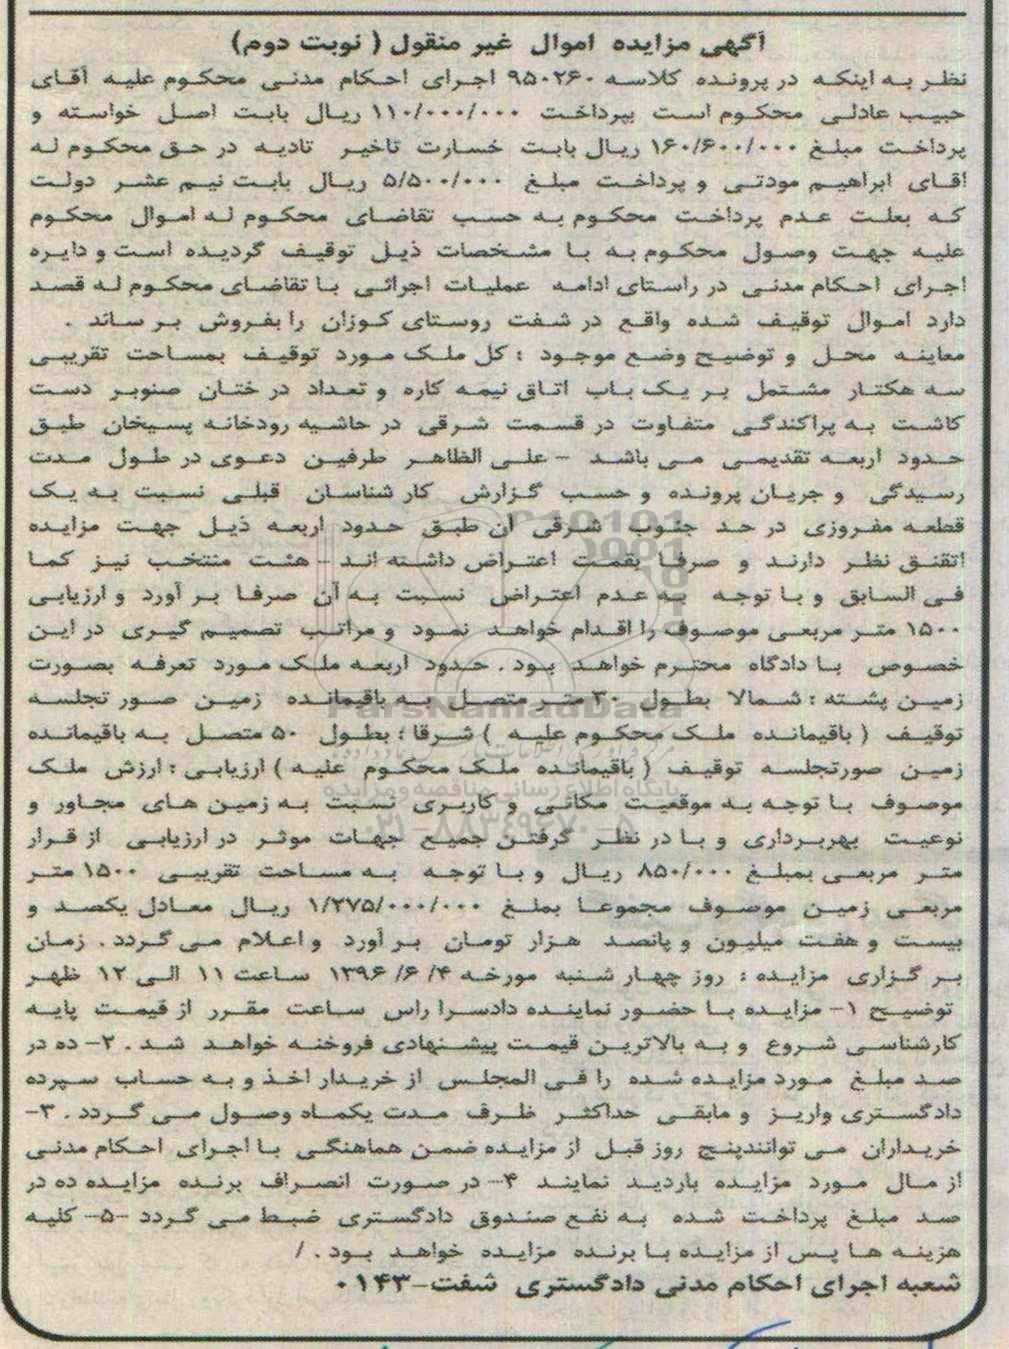 آگهی مزایده اموال غیر منقول ( نوبت دوم)
نظر به اینکه در پرونده کلاسه ۹۵۰۲۶۰ اجرای احکام مدنی محکوم علیه آقای
حبیب عادلی محکوم است بپرداخت ۱۱۰/۰۰۰/۰۰۰ ریال بابت اصل خواسته و
پرداخت مبلغ ۱۶۰/۶۰۰/۰۰۰ ریال بابت خسارت تاخیر تادیه در حق محکوم له
اقای ابراهیم مودتی و پرداخت مبلغ ۵/۵۰۰/۰۰۰ ریال بابت نیم عشر دولت
که بعلت عدم پرداخت محکوم به حسب تقاضای محکوم له اموال محکوم
علیه جهت وصول محکوم به با مشخصات ذیل توقیف گردیده است و دایره
اجرای احکام مدنی در راستای ادامه عملیات اجرائی با تقاضای محکوم له قصد
دارد اموال توقیف شده واقع در شفت روستای کوزان را بفروش بر ساند .
معاینه محل و توضیح وضع موجود : کل ملک مورد توقیف بمساحت تقریبی
سه هکتار مشتمل بر یک باب اتاق نیمه کاره و تعداد در ختان صنوبر دست
کاشت به پراکندگی متفاوت در قسمت شرقی در حاشیه رودخانه پسیخان طبق
حدود اربعه تقدیمی می باشد - علی الظاهر طرفین دعوی در طول مدت
رسیدگی و جریان پرونده و حسب گزارش کار شناسان قبلی نسبت به یک
قطعه مفروزی در حد جنوب شرقی آن طبق حدود اربعه ذیل جهت مزایده
اتقنق نظر دارند و صرفا بقمت اعتراض داشته اند - هئت منتخب نیز کما
فی السابق و با توجه به عدم اعتراض نسبت به آن صرفا بر آورد و ارزیابی
۱۵۰۰ متر مربعی موصوف را اقدام خواهد نمود و مراتب تصمیم گیری در این
خصوص با دادگاه محترم خواهد بود . حدود اربعه ملک مورد تعرفه بصورت
زمین پشته : شمالا بطول ۳۰ متر متصل به باقیمانده زمین صور تجلسه
توقیف ( باقیمانده ملک محکوم علیه ) شرقا : بطول ۵۰ متصل به باقیمانده
زمین صورتجلسه توقیف ( باقیمانده ملک محکوم علیه ) ارزیابی : ارزش ملک
موصوف با توجه به موقعیت مکانی و کاربری نسبت به زمین های مجاور و
نوعیت بهربرداری و با در نظر گرفتن جمیع جهات موثر در ارزیابی از قرار
متر مربعی بمبلغ ۸۵۰/۰۰۰ ریال و با توجه به مساحت تقریبی ۱۵۰۰ متر
مربعی زمین موصوف مجموعا بملغ ۱/۲۷۵/۰۰۰/۰۰۰ ریال معادل یکصد و
بیست و هفت میلیون و پانصد هزار تومان بر آورد و اعلام می گردد . زمان
بر گزاری مزایده : روز چهار شنبه مورخه ۴/ ۶/ ۱۳۹۶ ساعت ۱۱ الی ۱۲ ظهر
توضیح ۱- مزایده با حضور نماینده دادسرا راس ساعت مقرر از قیمت پایه
کارشناسی شروع و به بالاترین قیمت پیشنهادی فروخنه خواهد شد . ۲- ده در
صد مبلغ مورد مزایده شده را فی المجلس از خریدار اخذ و به حساب سپرده
دادگستری واریز و مابقی حداکثر ظرف مدت یکماد وصول می گردد . ۳-
خریداران می توانندپنج روز قبل از مزایده ضمن هماهنگی با اجرای احکام مدنی
از مال مورد مزایده باردید نمایند ۴- در صورت انصراف برنده مزایده ده در
صد مبلغ پرداخت شده به نفع صندوق دادگستری ضبط می گردد -۵- کلیه
هزینه ها پس از مزایده با برنده مزایده خواهد بود . /
شعبه اجرای احکام مدنی دادگستری شفت-۰۱۴۳
ParsNamadData
پایگاه اطلاع رسانی مناقصه و مزایده
۰۲۱-۸۸۳۴۹۶۷۰-۵